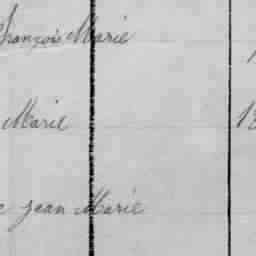 François Marie
Marie
Jean Marie